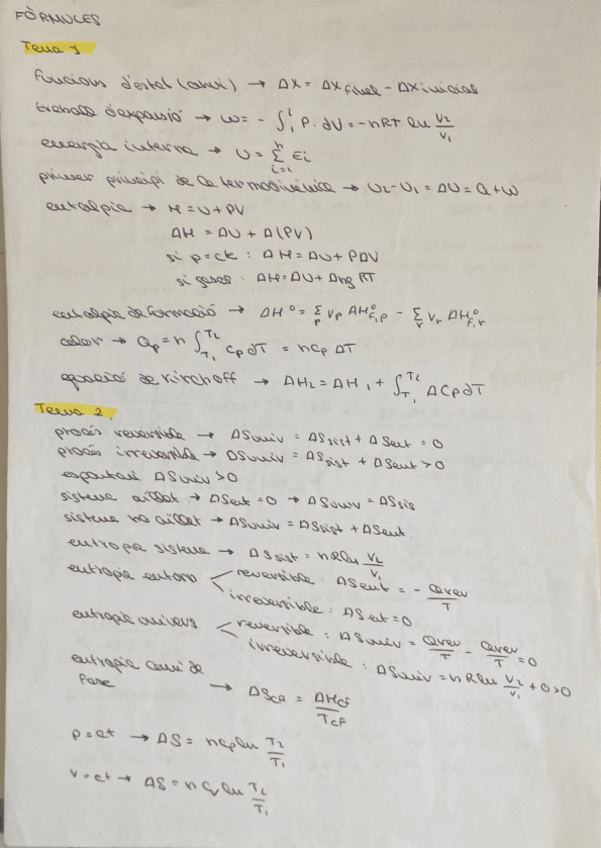 FÒRMULES
Tema 1
funcions d'estat (canvi) → ΔX = ΔX final - ΔX inicial
treball d'expansió → w = - ∫₁² P · dV = -nRT ln V₂/V₁
energia interna → U = Σⁿᵢ₌₁ εi
primer principi de la termodinàmica → U₂ - U₁ = ΔU = Q + W
entalpia → H = U + PV
ΔH = ΔU + Δ(PV)
si p = ck : ΔH = ΔU + PΔV
si gasos : ΔH = ΔU + Δng RT
entalpia de formació → ΔH° = Σp νp ΔH°f,p - Σr νr ΔH°f,r
calor → Qp = n ∫T₁^T₂ Cp dT = nCp ΔT
equació de Kirchoff → ΔH₂ = ΔH₁ + ∫T₁^T₂ ΔCp dT
Tema 2.
procés reversible → ΔSuniv = ΔSsist + ΔSent = 0
procés irreversible → ΔSuniv = ΔSsist + ΔSent > 0
espontani ΔSuniv > 0
sistema aïllat → ΔSent = 0 → ΔSuniv = ΔSsis
sistema no aïllat → ΔSuniv = ΔSsist + ΔSent.
entropia sistema → ΔSsist = nR ln V₂/V₁
entropia entorn < reversible : ΔSent = - Qrev/T
irreversible : ΔSent = 0
entropia univers < reversible : ΔSuniv = Qrev/T - Qrev/T = 0
irreversible : ΔSuniv = nR ln V₂/V₁ + 0 > 0
entropia canvi de
fase → ΔScf = ΔHcf/Tcf
p = ct → ΔS = nCp ln T₂/T₁
v = ct → ΔS = n Cv ln T₂/T₁